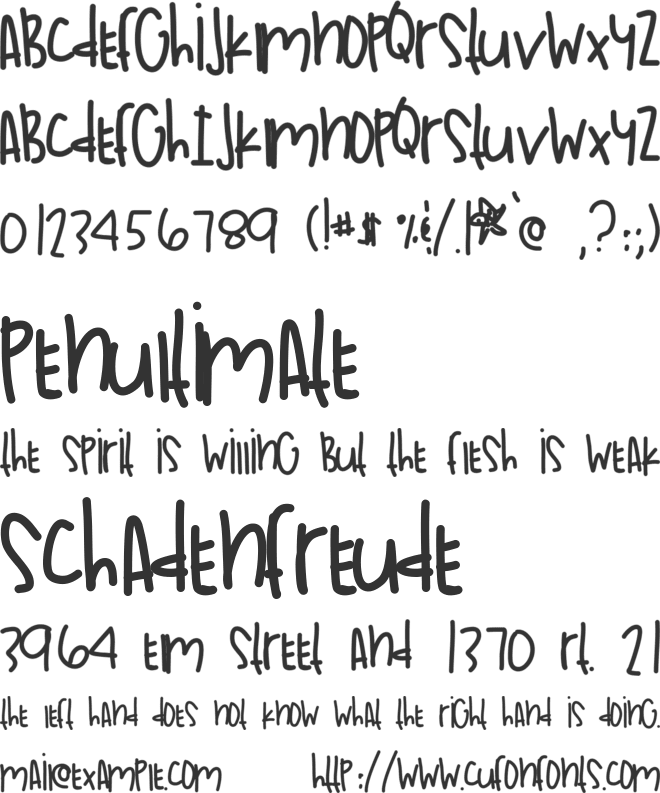 ABCdEfGhiJklmnOPQrStuvwxyz
ABCdEfGhIJklmnOPQrStuvwxyz
0123456789 (!#$ %&/.|*`@ ,?:;)
PEnultimAtE
thE SPirit iS willinG But thE flESh iS wEAk
SChAdEnfrEudE
3964 Elm StrEEt And 1370 rt. 21
thE lEft hAnd dOES nOt knOw whAt thE riGht hAnd iS dOinG.
mAil@ExAmPlE.COm http://www.CufOnfOntS.COm